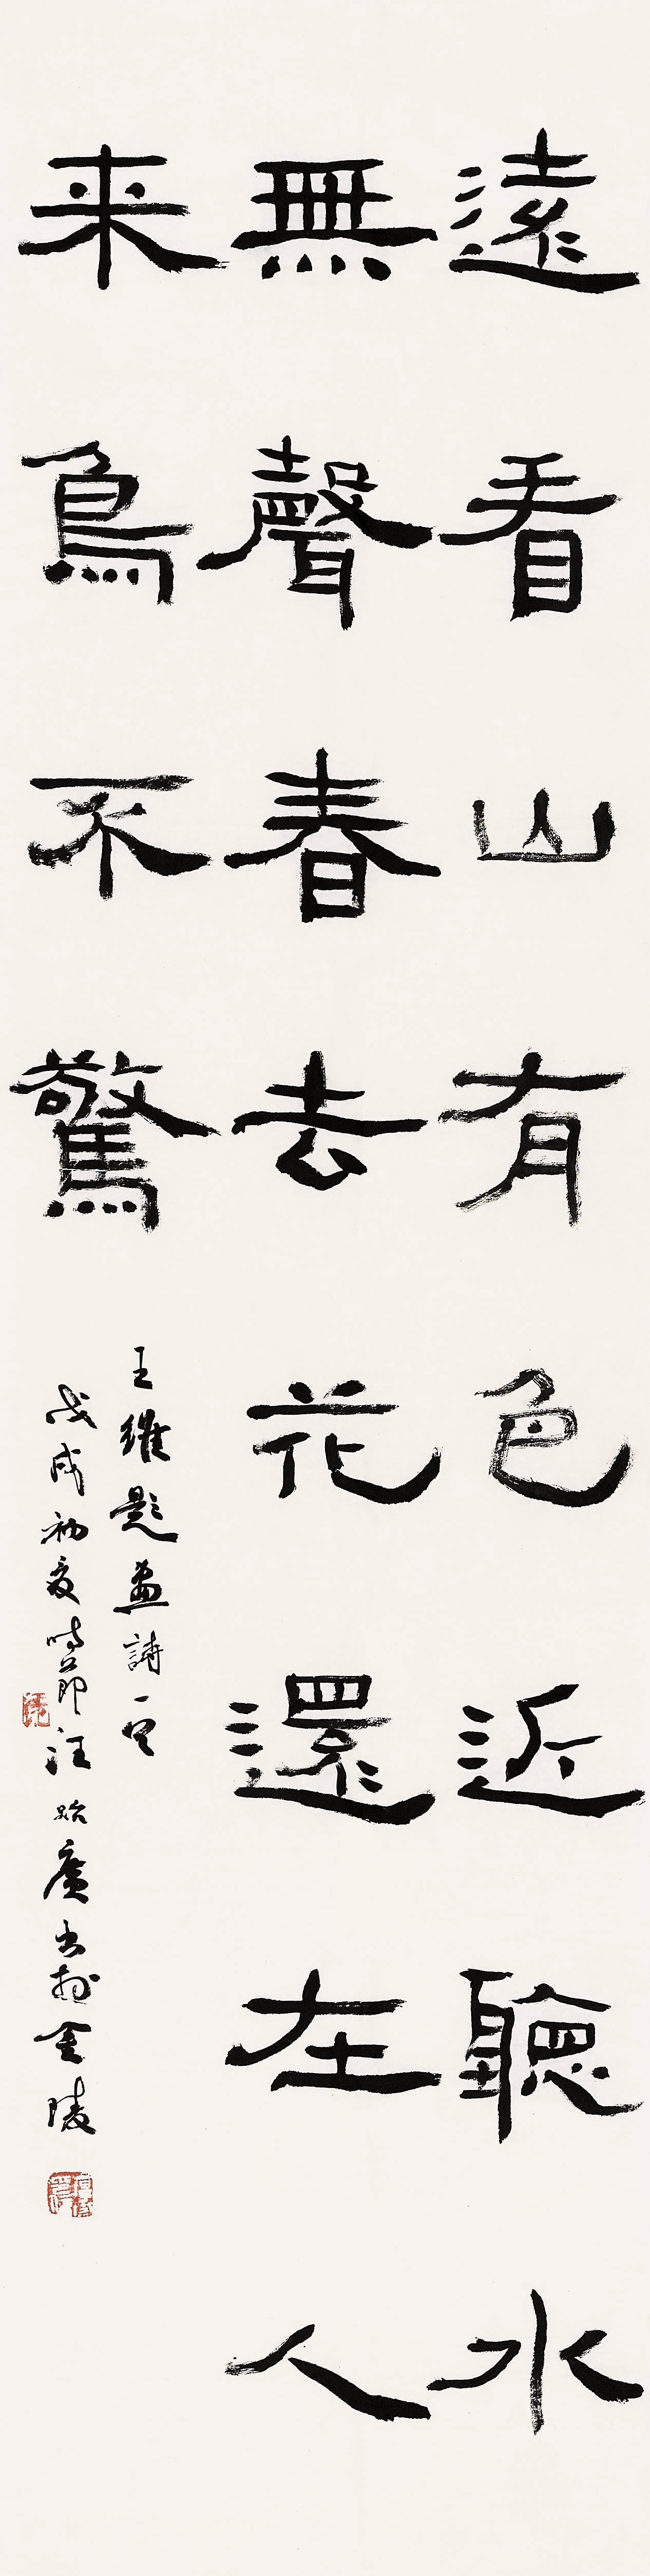 遠看山有色近聽水
無聲春去花還在人
来鳥不驚
王維題畫詩一首
戊戌初夏時節汪
始廣書於金陵